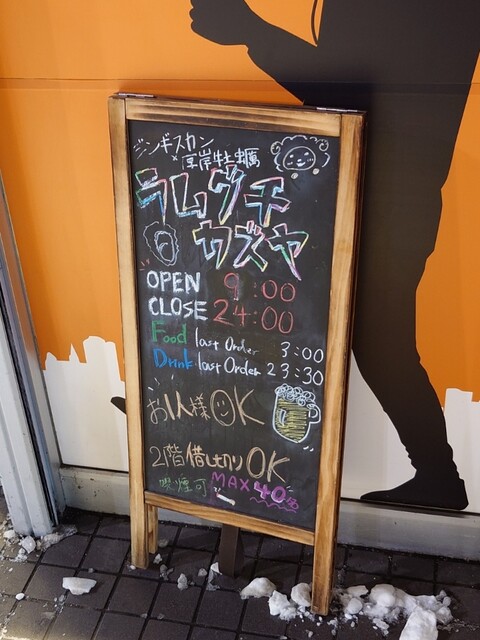 ジンギスカン
×厚岸牡蠣
ラムウチ
カズヤ
OPEN 9:00
CLOSE 24:00
Food last Order 3:00
Drink last Order 23:30
お1人様OK
2階 貸し切りOK
喫煙可 MAX40名